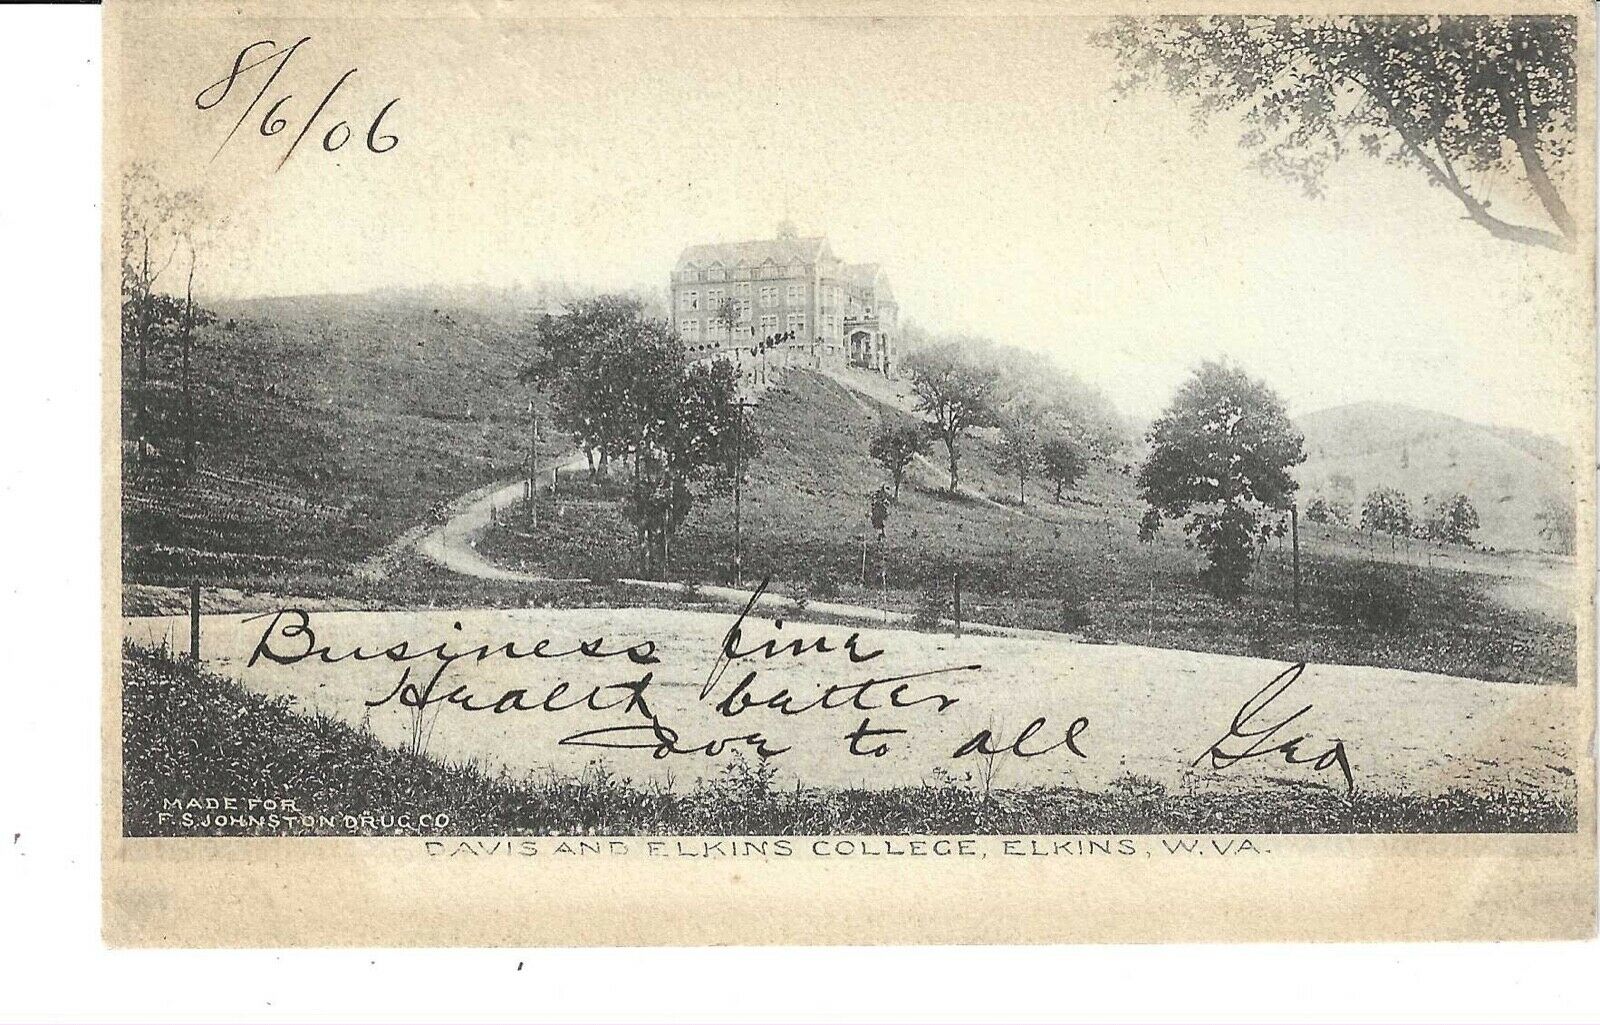 8/6/06
Business fine
Health better
Love to all Geo
MADE FOR
F.S. JOHNSTON DRUG CO
DAVIS AND ELKINS COLLEGE, ELKINS, W. VA.